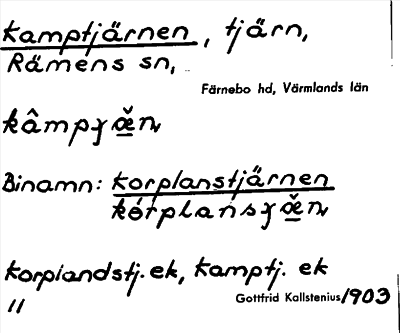 Kamptjärnen, tjärn,
Rämens sn,
Färnebo hd, Värmlands län
kâmpɟæ̌n
Binamn: Korplanstjärnen
Korplandstj. ek, Kamptj. ek
"
Gottfrid Kallstenius 1903